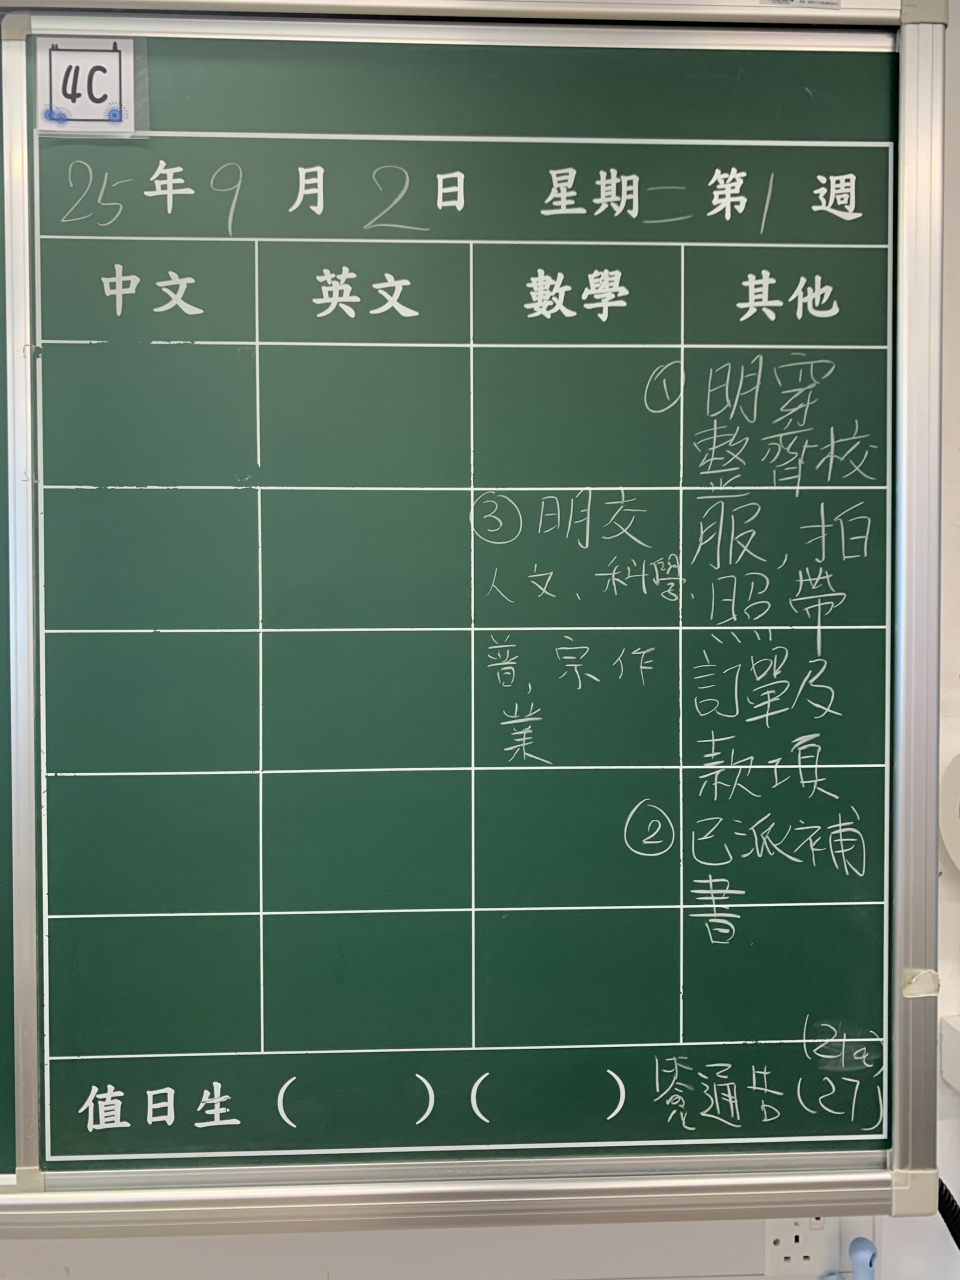 4C
25年9月2日 星期二第1週
中文 英文 數學 其他
① 明穿
整齊校
服,拍
照帶
訂單及
款項
② 已派補
書
③ 明交
人文、科學、
普,宗作
業
(21a)
值日生( )( ) 電通告(27)